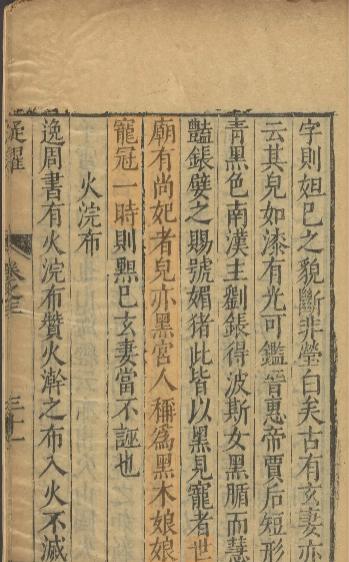 字則妲已之貌斷非瑩白矣古有玄妻亦
云其皃如漆有光可鑑晉惠帝賈后短形
青黑色南漢主劉鋹得波斯女黑腯而慧
豔鋹嬖之賜號媚猪此皆以黑見寵者世
廟有尚妃者皃亦黑宮人稱爲黑木娘娘
寵冠一時則黑巳玄妻當不誣也
火浣布
逸周書有火浣布贊火澣之布入火不滅
卷之三
三十一